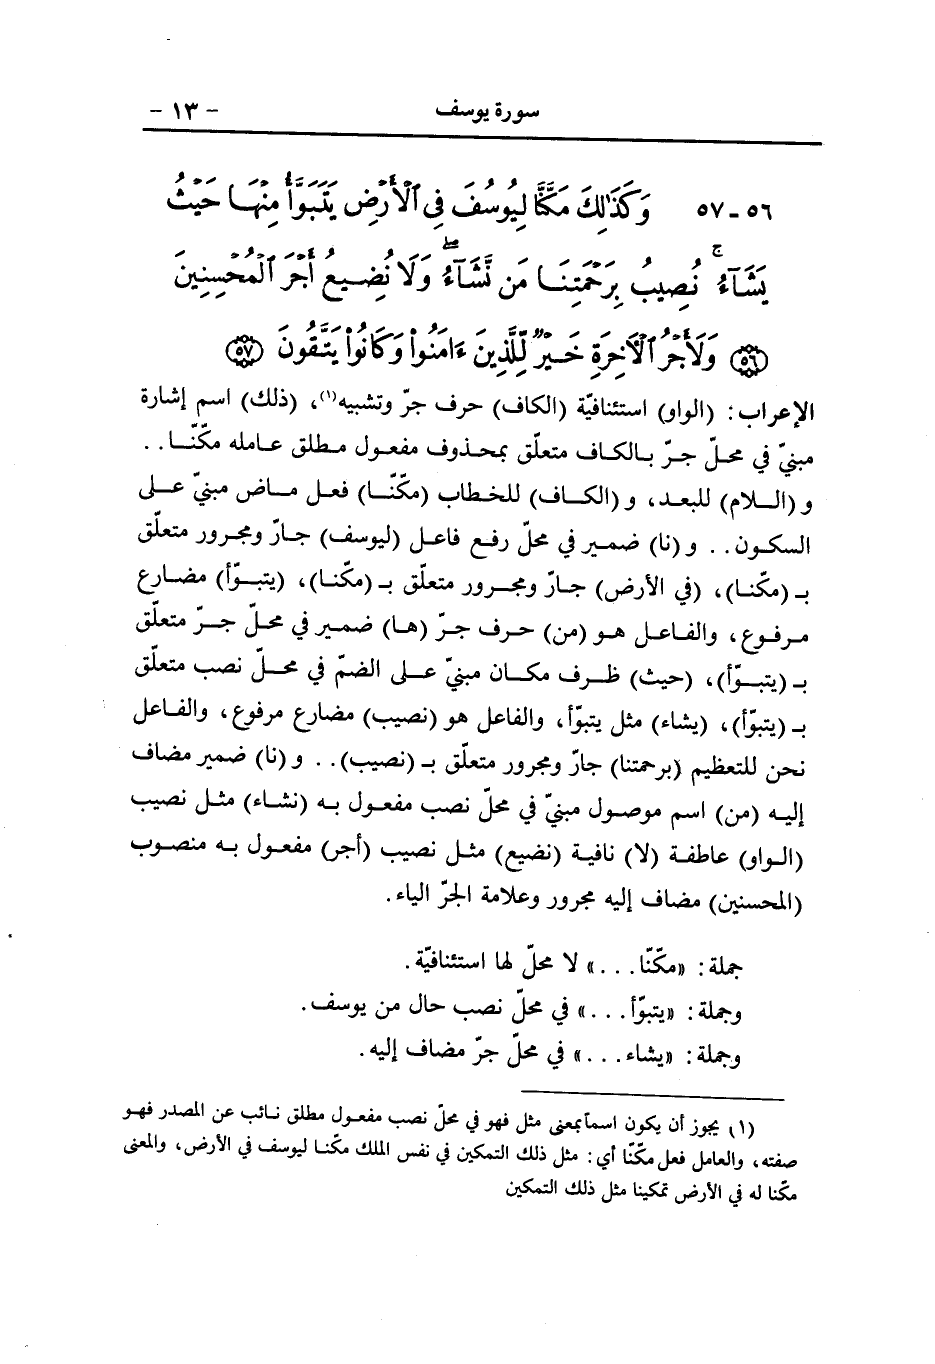 سورة يوسف - ١٣ -
٥٦ - ٥٧ وَكَذَٰلِكَ مَكَّنَّا لِيُوسُفَ فِي ٱلْأَرْضِ يَتَبَوَّأُ مِنْهَا حَيْثُ
يَشَآءُ ۚ نُصِيبُ بِرَحْمَتِنَا مَن نَّشَآءُ ۖ وَلَا نُضِيعُ أَجْرَ ٱلْمُحْسِنِينَ
﴿٥٦﴾ وَلَأَجْرُ ٱلْآخِرَةِ خَيْرٌ لِّلَّذِينَ ءَامَنُوا۟ وَكَانُوا۟ يَتَّقُونَ ﴿٥٧﴾
الإعراب : (الواو) استئنافيّة (الكاف) حرف جرّ وتشبيه(١)، (ذلك) اسم إشارة
مبنيّ في محلّ جرّ بالكاف متعلّق بمحذوف مفعول مطلق عامله مكّنّا . .
و (اللام) للبعد، و (الكاف) للخطاب (مكّنّا) فعل ماض مبنيّ على
السكون . . و (نا) ضمير في محلّ رفع فاعل (ليوسف) جارّ ومجرور متعلّق
بـ (مكّنا)، (في الأرض) جارّ ومجرور متعلّق بـ (مكّنا)، (يتبوّأ) مضارع
مرفوع، والفاعل هو (من) حرف جرّ (ها) ضمير في محلّ جرّ متعلّق
بـ (يتبوّأ)، (حيث) ظرف مكان مبنيّ على الضمّ في محلّ نصب متعلّق
بـ (يتبوّأ)، (يشاء) مثل يتبوّأ، والفاعل هو (نصيب) مضارع مرفوع، والفاعل
نحن للتعظيم (برحمتنا) جارّ ومجرور متعلّق بـ (نصيب) . . و (نا) ضمير مضاف
إليه (من) اسم موصول مبنيّ في محلّ نصب مفعول به (نشاء) مثل نصيب
(الواو) عاطفة (لا) نافية (نضيع) مثل نصيب (أجر) مفعول به منصوب
(المحسنين) مضاف إليه مجرور وعلامة الجرّ الياء .
جملة : «مكّنّا . . .» لا محلّ لها استئنافيّة .
وجملة : «يتبوّأ . . .» في محلّ نصب حال من يوسف .
وجملة : «يشاء . . .» في محلّ جرّ مضاف إليه .
(١) يجوز أن يكون اسماً بمعنى مثل فهو في محلّ نصب مفعول مطلق نائب عن المصدر فهو
صفته، والعامل فعل مكّنّا أي : مثل ذلك التمكين في نفس الملك مكّنا ليوسف في الأرض، والمعنى
مكّنا له في الأرض تمكينا مثل ذلك التمكين